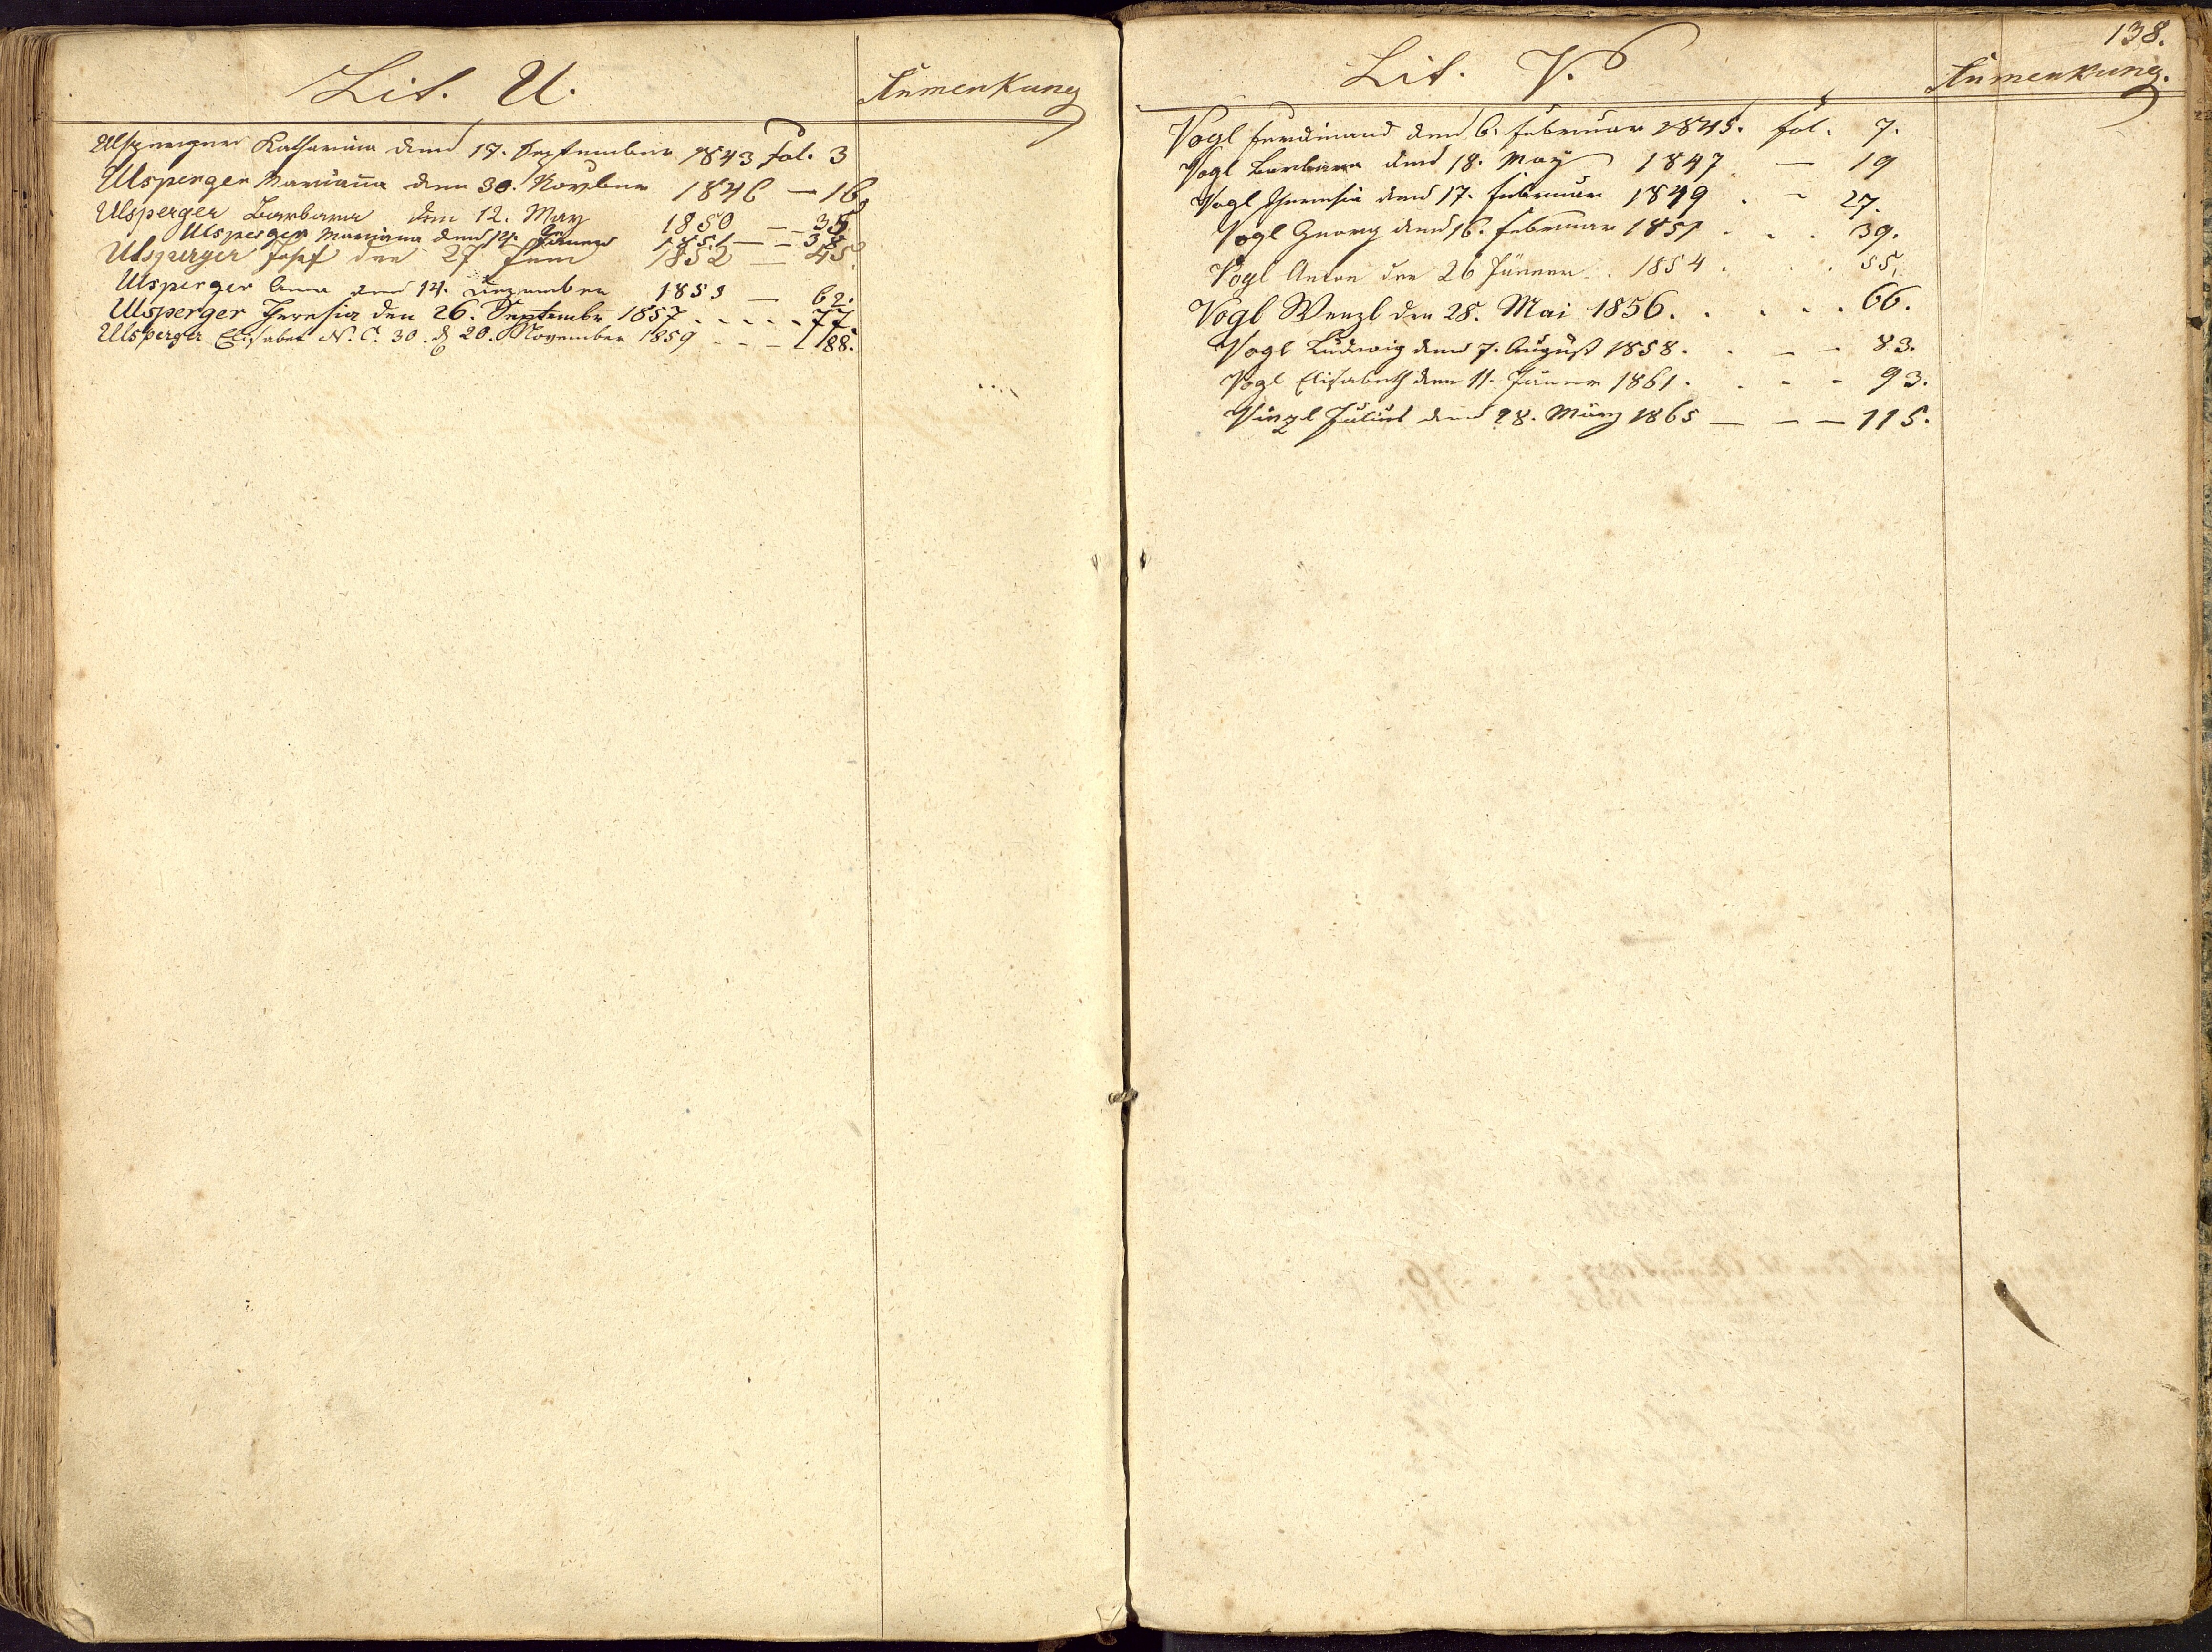 Lit. U.
Anmerkung
Ulsperger Katharina den 17. September 1843 fol. 3
Ulsperger Mariana den 30. Novber 1846 — 16
Ulsperger Barbara den 12. May 1850 — — 35
Ulsperger Mariana den 14. Jäner 1851 — — 38
Ulsperger Josef den 27 Juni 1852 — 45.
Ulsperger Anna den 14. Dezember 1855 — 62.
Ulsperger Theresia den 26. Septembr 1857 . - - - - 77.
Ulsperger Elisabet N. C. 30. d 20. November 1859 - - - 88.
138.
Lit. V.
Anmerkung.
Vogl Ferdinand den 6. Februar 1845. fol. 7.
Vogl Barbara den 18. May 1847. — 19
Vogl Theresia den 17. Februar 1849 . - 27.
Vogl Georg den 16. Februar 1851 . . . 39.
Vogl Anton den 26 Jänner . 1854 . . . 55.
Vogl Wenzl den 28. Mai 1856. . . . . 66.
Vogl Ludwig den 7. August 1858. . - - 83.
Vogl Elisabeth den 11. Jäner 1861. . - - 93.
Julius den 28. März 1865 — — — 115.